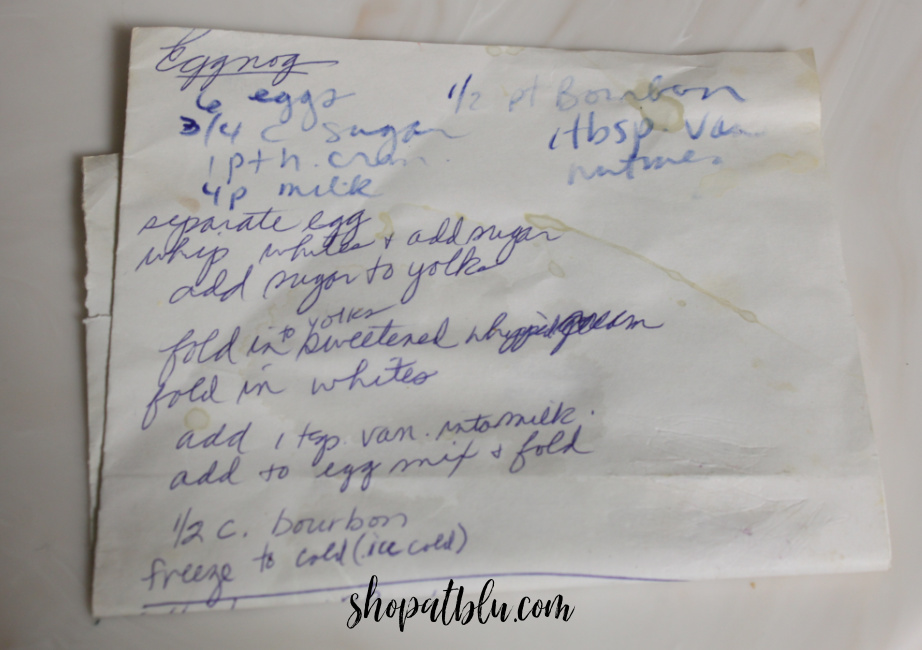 Eggnog
6 eggs
3/4 c sugar
1 pt h. cream.
4p milk
1/2 pt Bourbon
1 tbsp. van.
nutmeg
separate egg
whip whites & add sugar
add sugar to yolks
fold into yolks sweetened whipped cream
fold in whites
add 1 tsp. van. into milk.
add to egg mix & fold
1/2 c. bourbon
freeze to cold (ice cold)
shopatblu.com